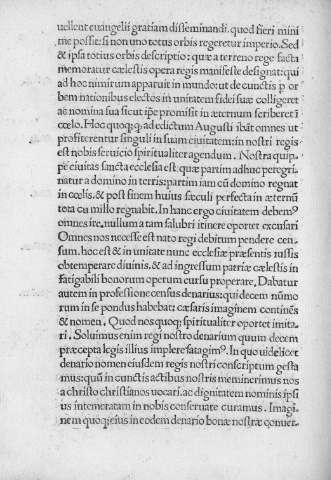 uellent euangelii gratiam disseminandi. quod fieri mini
me posset: si non uno totus orbis regeretur imperio. Sed
& ipsa totius orbis descriptio: quæ a terreno rege facta
memoratur cælestis opera regis manifeste designat: qui
ad hoc nimirum apparuit in mundo: ut de cunctis p or
bem nationibus electos in unitatem fidei suæ colligeret
ac nomina sua sicut ipse promisit in æternum scriberet ī
cœlo. Hoc quoq; q; ad edictum Augusti ibāt omnes ut
profiterentur singuli in suam ciuitatem: in nostri regis
est nobis seruicio spiritualiter agendum. Nostra quip‑
pe ciuitas sancta ecclesia est: quæ partim adhuc peregri‑
natur a domino in terris: partim iam cū domino regnat
in cœlis. & post finem huius sæculi perfecta in æternū
tota cū illo regnabit. In hanc ergo ciuitatem debemꝰ
omnes ire, nullum a tam salubri itinere oportet excusari
Omnes nos necesse est nato regi debitum pendere cen‑
sum. hoc est & in unitate nunc ecclesiæ præsentis iussis
obtemperare diuinis. & ad ingressum patriæ cælestis in
fatigabili bonorum operum cursu properare, Dabatur
autem in professione census denarius: qui decem nūmo
rum in se pondus habebat: cæsaris imaginem continēs
& nomen. Quod nos quoq; spiritualiter oportet imita‑
ri. Soluimus enim regi nostro denarium quum decem
præcepta legis illius implere satagimꝰ. In quo uidelicet
denario nomen eiusdem regis nostri conscriptum gesta
mus: quū in cunctis actibus nostris meminerimus nos
a christo christianos uocari. ac dignitatem nominis ipsi
us intemeratam in nobis conseruare curamus. Imagi‑
nem quoq; eius in eodem denario bonæ nostræ conuer‑